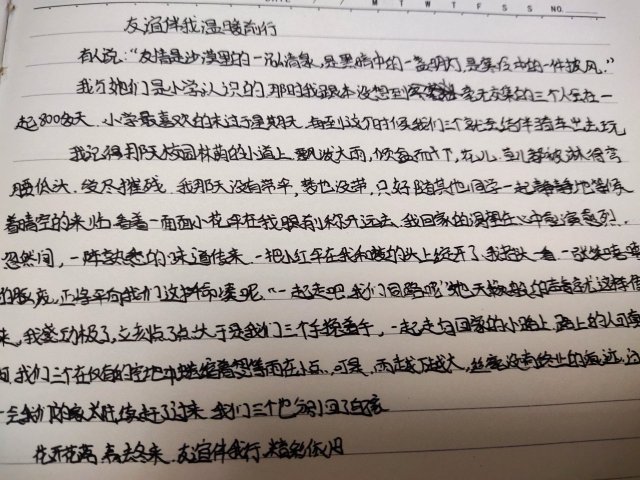 DATE / / M T W T F S S NO.
友谊伴我温暖前行
有人说："友情是沙漠里的一泓清泉,是黑暗中的一盏明灯,是寒夜中的一件披风。"
我与她们是小学认识的,那时我跟本没想到毫无交集的三个人会在一
起800多天.小学最喜欢的末过于星期天.每到这个时候我们三个就会结伴骑车出去玩
我记得那天校园林荫的小道上飘泼大雨,倾盆而下,花儿、草儿都被淋得弯
腰低头、受尽摧残.我那天没有带伞,梦也没带,只好随其他同学一起静静地等候
着晴空的来临.看着一面面小花伞在我眼前渐行远去.我回家的渴望在心中愈演愈烈.
忽然间,一阵熟悉的味道传来.一把小红伞在我和梦的头上绽开了.我抬头一看一张笑嘻嘻
的脸庞,正将伞向我们这拼命凑呢."一起走吧,我们同路呢"她天
来,我感动极了,立刻点了点头于是我们三个手挽着手,一起走向回家的小路上.路上的人
我们三个在仅有的空地中蜷缩着等雨在小点.可是,雨越下越大,丝毫没有终止的痕迹.
会我们的家人陆续赶了过来.我们三个也分别回了自家
花开花落,春去冬来.友谊伴我行,精彩依旧